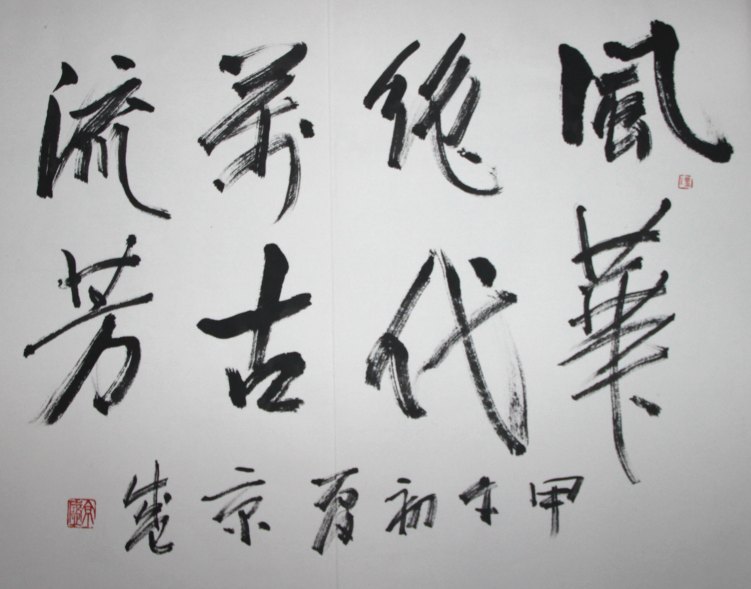 風華
絕代
萬古
流芳
甲午初夏京